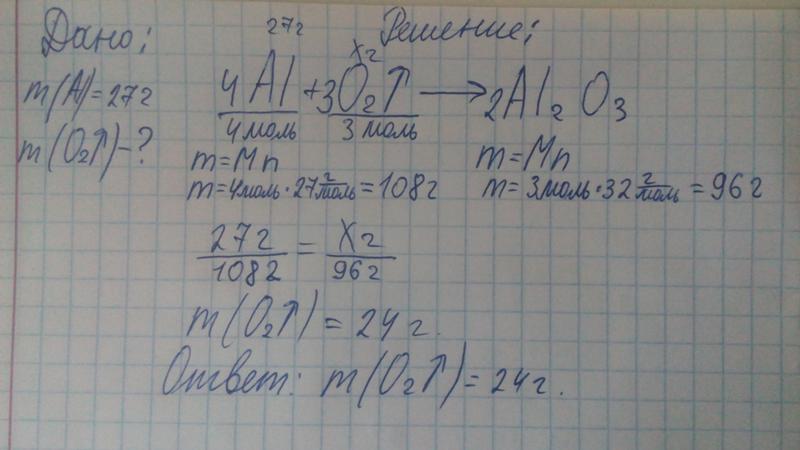 Дано:
m(Al)=27г
m(O₂↑)-?
Решение:
27г xг
4Al+3O₂↑→2Al₂O₃
4моль 3моль
m=Mn
m=4моль·27 г/моль=108г
m=Mn
m=3моль·32 г/моль=96г
27г/108г=Xг/96г
m(O₂↑)=24г.
Ответ: m(O₂↑)=24г.